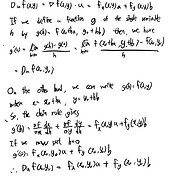 D_u f(x,y) = ∇f(x,y)·u = f_x(x,y)a + f_y(x,y)b
If we define a function g of the single variable
h by g(h) = f(x₀+ha, y₀+hb) then, we have
g'(0) = lim g(h)-g(0) / h = lim f(x₀+ha, y₀+hb) - f(x₀,y₀) / h
= D_u f(x₀,y₀)
On the other hand, we can write g(h) = f(x,y)
where x = x₀+ha, y = y₀+hb
So, the chain rule gives
g'(h) = ∂f/∂x dx/dh + ∂f/∂y dy/dh = f_x(x,y)a + f_y(x,y)b
If we now put h=0
g'(0) = f_x(x₀,y₀)a + f_y(x₀,y₀)b
∴ D_u f(x₀,y₀) = f_x(x₀,y₀)a + f_y(x₀,y₀)b